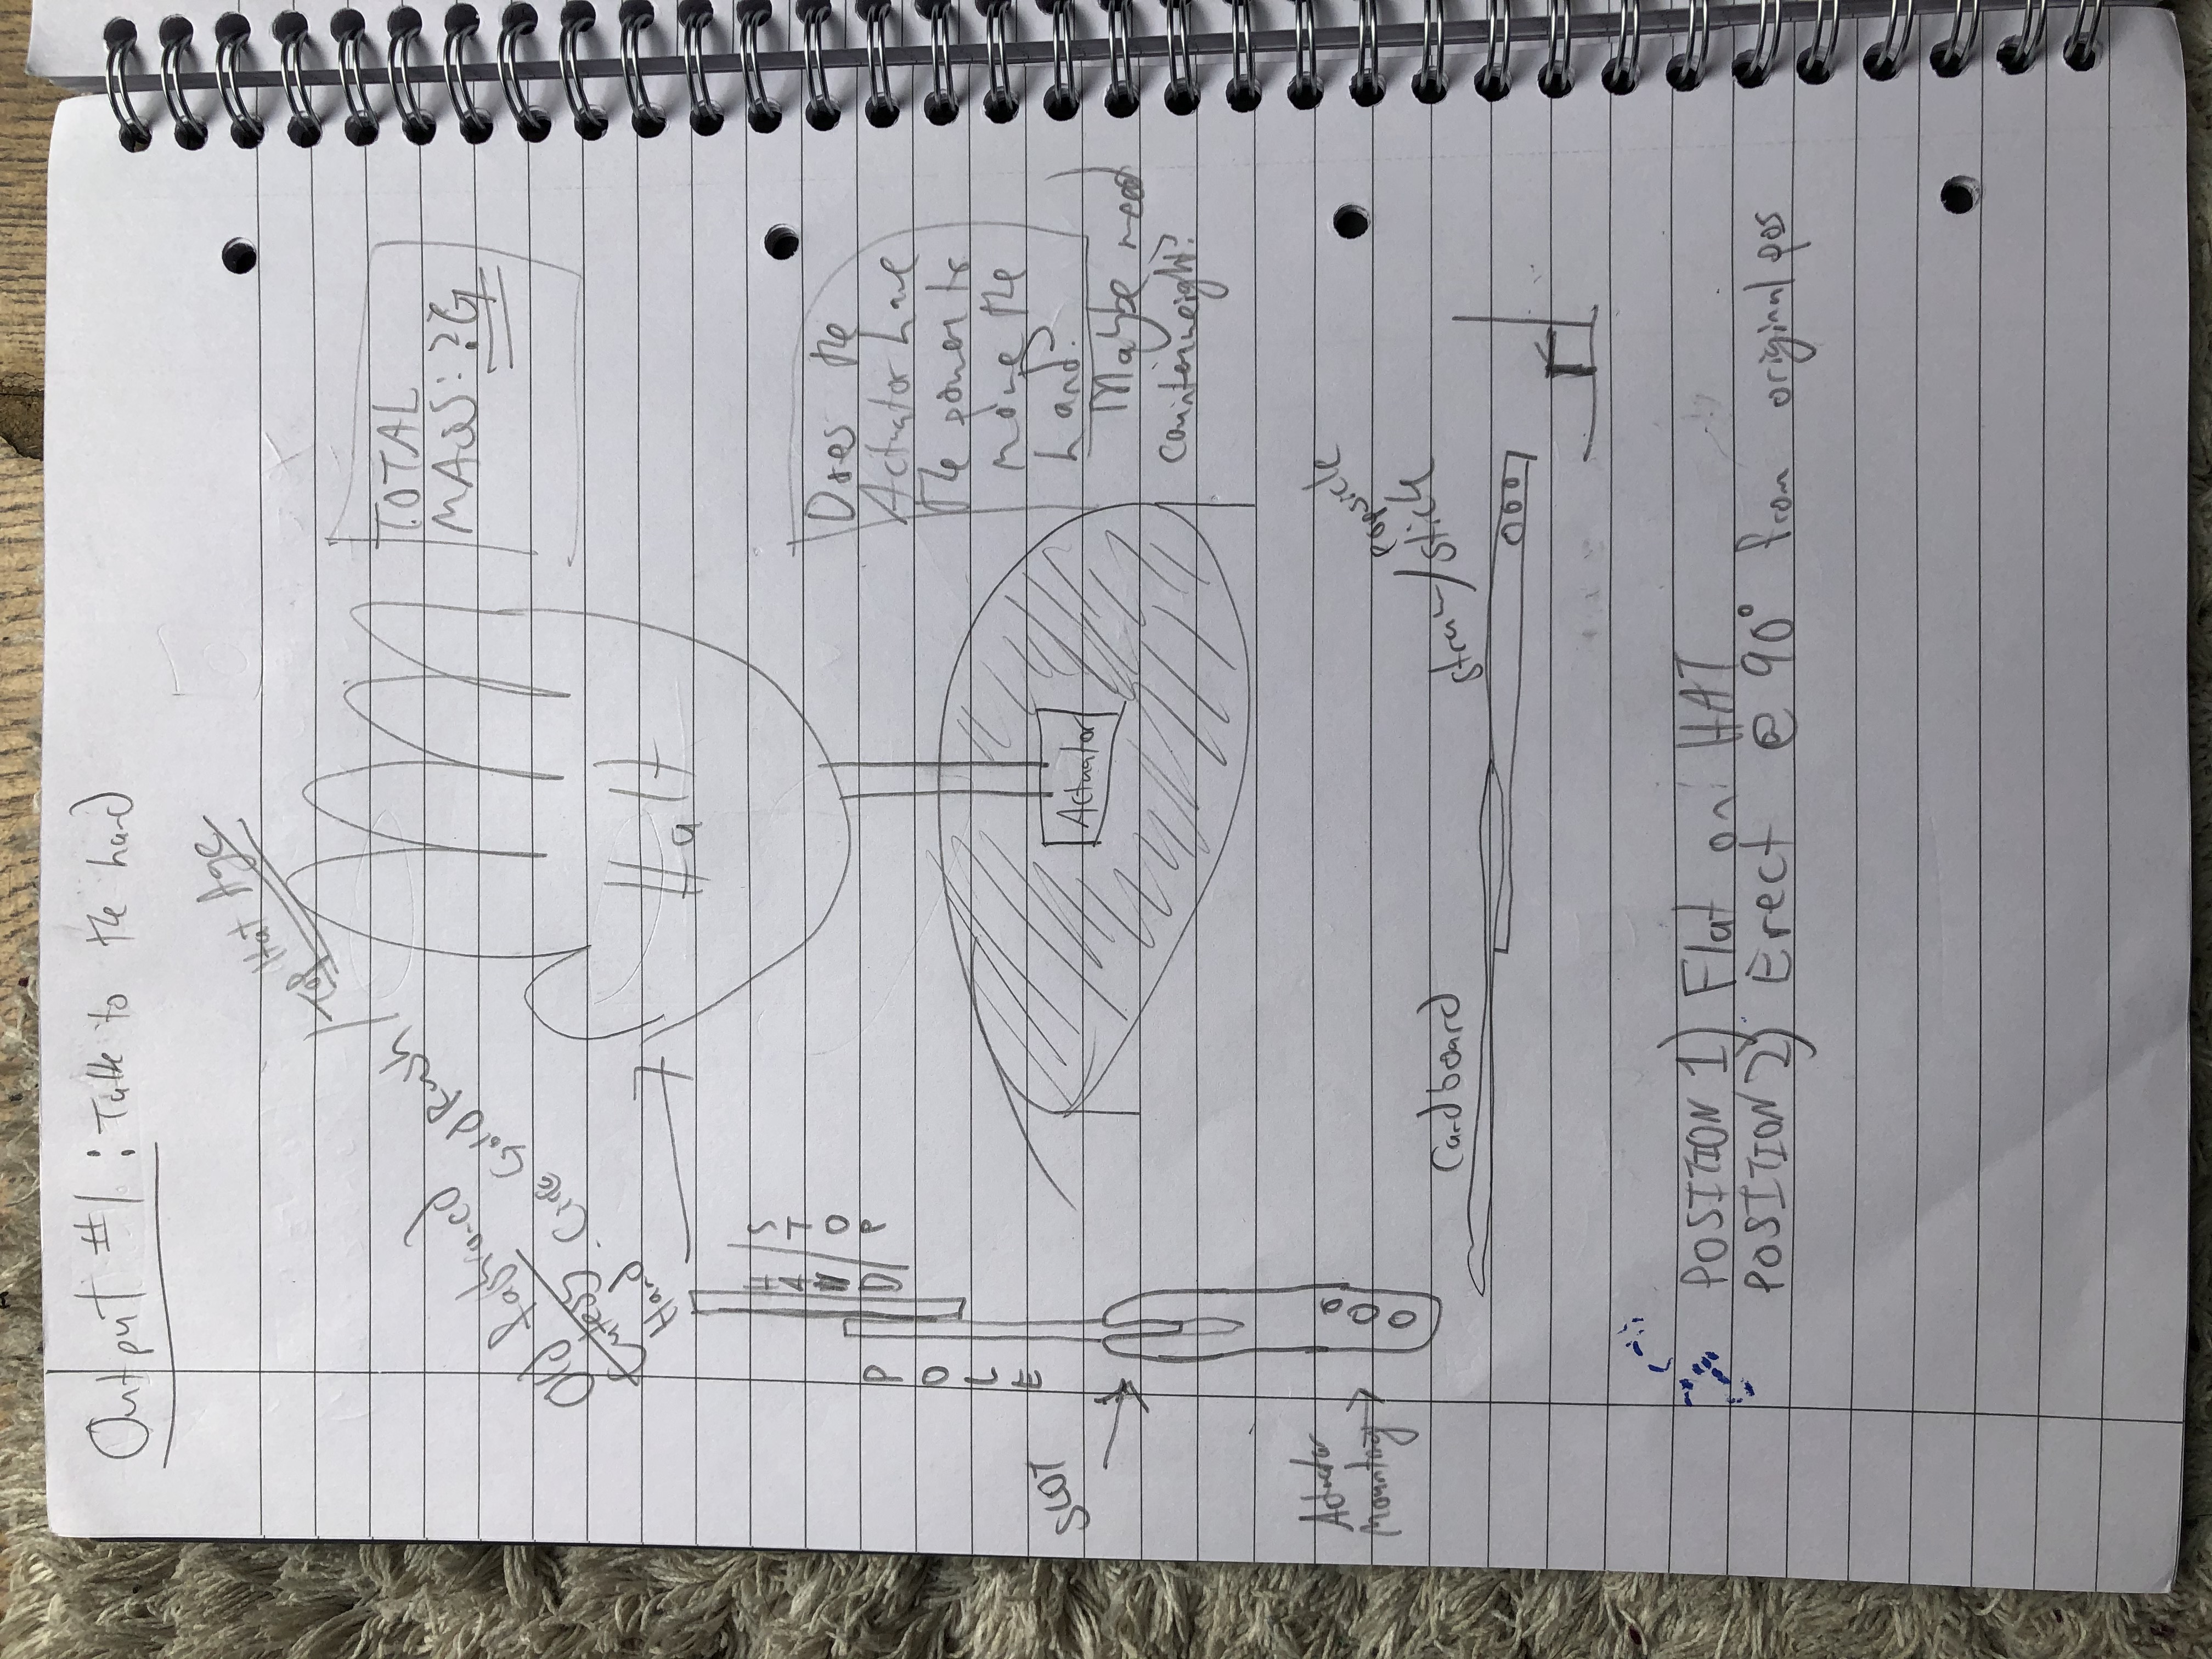 Output #1: Talk to the hand
Top Hat Age
Old Fashioned
Hand - Circa Gold Rush /
TOTAL
MASS: ?G
Halt
HAND / STOP
POLE
SLOT
Does the
Actuator have
the power to
move the
hand?
Maybe need
counterweight?
Actuator
Actuator
Mounting
Cardboard
straw/popsicle
stick
POSITION 1) Flat on HAT
POSITION 2) Erect @ 90° from original pos